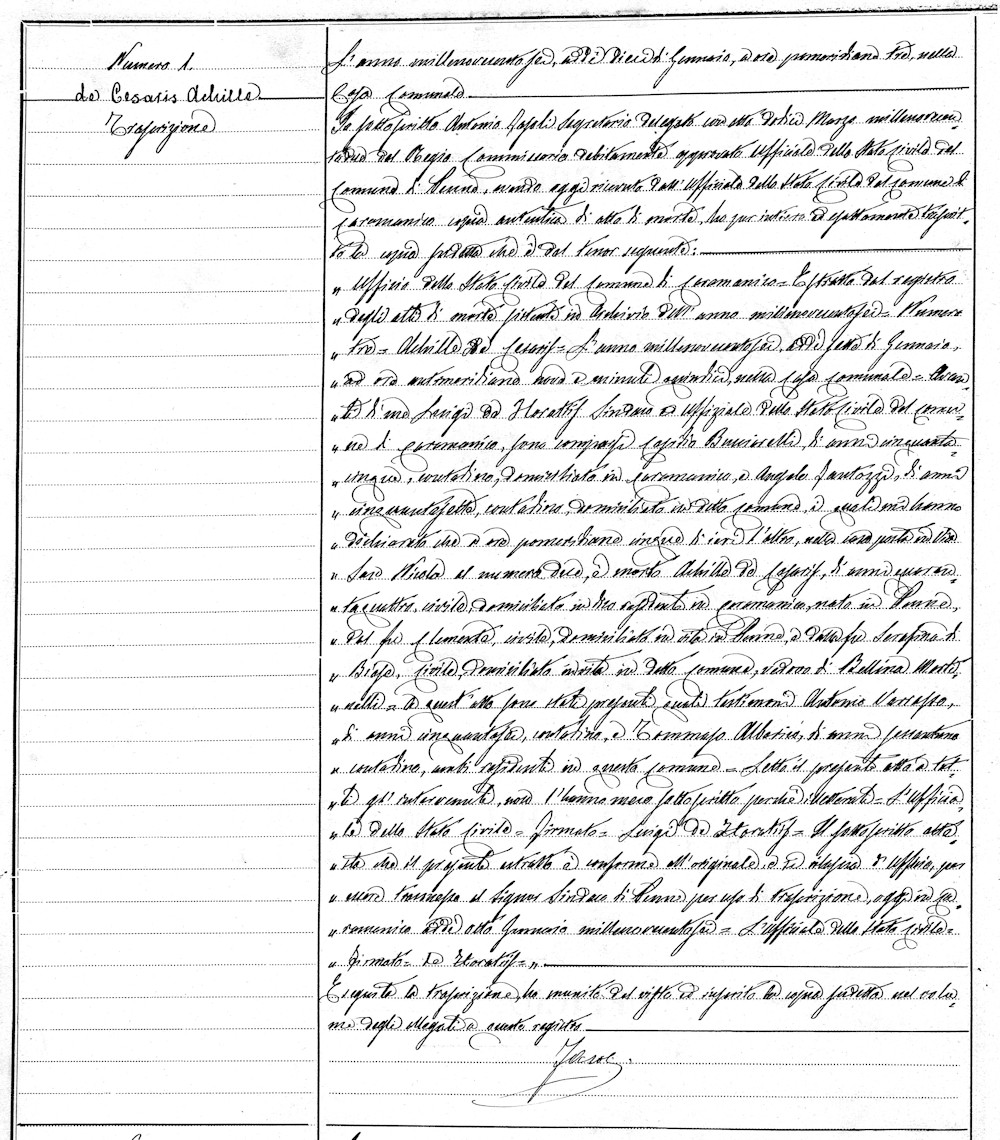 Numero 1.
de Cesaris Achille
Trascrizione
L'anno millenovecentosei, addì dieci di Gennaio, a ore pomeridiane tre, nella
Casa Comunale.
Io sottoscritto Antonio Fasoli Segretario delegato con atto dodici Marzo millenovecen-
todue dal Regio Commissario debitamente approvato Ufficiale dello Stato Civile del
Comune di Penne, avendo oggi ricevuta dall'Ufficiale dello Stato Civile del comune di
Caramanico copia autentica di atto di morte, ho per intiero ed esattamente trascrit-
to la copia suddetta che è del tenor seguente:
„ Ufficio dello Stato Civile del comune di Caramanico = Estratto dal registro
„ degli atti di morte esistente in Archivio dell'anno millenovecentosei = Numero
„ tre = Achille De Cesaris = L'anno millenovecentosei, addì sette di Gennaio,
„ ad ore antimeridiane nove e minuti quindici, nella Casa comunale = Avan-
„ ti di me Luigi de Horatiis Sindaco ed Uffiziale dello Stato Civile del comu-
„ ne di Caramanico, sono comparsi Bucciarelli, di anni cinquanta-
„ cinque, contadino, domiciliato in Caramanico, e Angelo Fantozzi, di anni
„ cinquantasette, contadino, domiciliato in detto comune, i quali mi hanno
„ dichiarato che a ore pomeridiane cinque di ieri l'altro, nella casa posta in Via
„ San Nicola al numero dieci, è morto Achille de Cesaris, di anni quaran-
„ taquattro, civile, domiciliato in dico residente in Caramanico, nato in Penne,
„ dal fu Clemente, civile, domiciliato in vita in Penne, e dalla fu Serafina di
„ Biase, civile, domiciliata in vita in detto comune, vedovo di Bellina
„ nelli = A quest'atto sono stati presenti quali testimoni Antonio Varrasso,
„ di anni cinquantasei, contadino, e Tommaso Alberico, di anni sessantuno
„ contadino, ambi residenti in questo comune = Letto il presente atto a tut-
„ ti gl'intervenuti, non l'hanno meco sottoscritto perchè illetterati = L'Ufficia-
„ le dello Stato Civile = firmato = Luigi de Horatiis = Il sottoscritto atte-
„ sta che il presente estratto è conforme all'originale e si rilascia d'Ufficio, per
„ essere trasmesso al Signor Sindaco di Penne per uso di trascrizione, oggi in Ca-
„ ramanico addì otto Gennaio millenovecentosei = L'Ufficiale dello Stato Civile =
„ firmato = De Horatiis = „
Eseguita la trascrizione, ho munito del visto ed inserito la copia suddetta nel volu-
me degli allegati a questo registro.